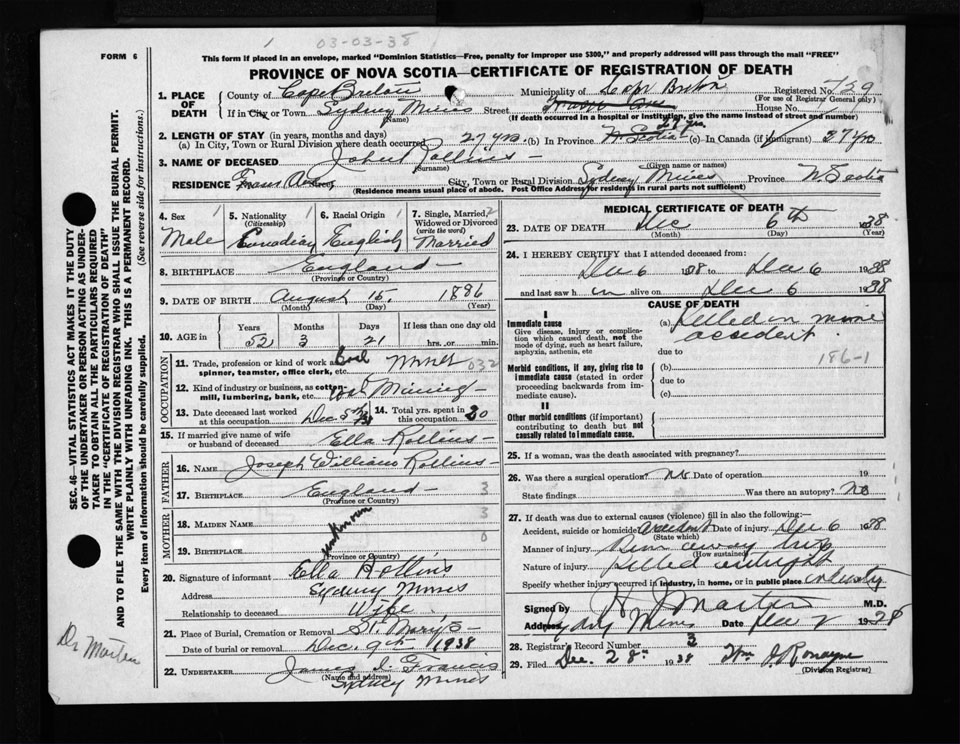 03-03-38
FORM 6
This form if placed in an envelope, marked "Dominion Statistics—Free, penalty for improper use $300," and properly addressed will pass through the mail "FREE"
PROVINCE OF NOVA SCOTIA—CERTIFICATE OF REGISTRATION OF DEATH
1. PLACE OF DEATH
County of Cape Breton Municipality of Cape Breton Registered No. 729
(For use of Registrar General only)
If in City or Town Sydney Mines Street House No.
(Name) (If death occurred in a hospital or institution, give the name instead of street and number)
2. LENGTH OF STAY (in years, months and days)
(a) In City, Town or Rural Division where death occurred 27 yrs (b) In Province N Scotia 27 yrs (c) In Canada (if immigrant) 27 yrs
3. NAME OF DECEASED John Rollins
(Surname) (Given name or names)
RESIDENCE City, Town or Rural Division Sydney Mines Province N Scotia
(Residence means usual place of abode. Post Office Address for residents in rural parts not sufficient)
4. Sex 1
Male
5. Nationality 1
(Citizenship)
Canadian
6. Racial Origin 1
English
7. Single, Married, 2
Widowed or Divorced
(write the word)
Married
8. BIRTHPLACE England
(Province or Country)
9. DATE OF BIRTH August 15, 1886
(Month) (Day) (Year)
10. AGE in Years Months Days If less than one day old
52 3 21 hrs. or min.
OCCUPATION
11. Trade, profession or kind of work as Coal Miner 032
spinner, teamster, office clerk, etc.
12. Kind of industry or business, as cotton-
mill, lumbering, bank, etc. Coal Mining
13. Date deceased last worked
at this occupation Dec 5th/38
14. Total yrs. spent in
this occupation 20
15. If married give name of wife
or husband of deceased Ella Rollins
FATHER
16. NAME Joseph William Rollins
17. BIRTHPLACE England 3
(Province or Country)
MOTHER
18. MAIDEN NAME unknown 3
19. BIRTHPLACE 0
(Province or Country)
20. Signature of informant Ella Rollins
Address Sydney Mines
Relationship to deceased Wife
21. Place of Burial, Cremation or Removal St. Mary's
Date of burial or removal Dec. 9th 1938
22. UNDERTAKER James I Francis
(Name and address)
Sydney Mines
MEDICAL CERTIFICATE OF DEATH
23. DATE OF DEATH Dec 6th 1938
(Month) (Day) (Year)
24. I HEREBY CERTIFY that I attended deceased from:
Dec 6 1938 to Dec 6 1938
and last saw h im alive on Dec 6 1938
CAUSE OF DEATH
I
Immediate cause
Give disease, injury or complication which caused death, not the mode of dying, such as heart failure, asphyxia, asthenia, etc
(a) Killed in mine
accident
due to
186-1
Morbid conditions, if any, giving rise to immediate cause (stated in order proceeding backwards from immediate cause).
(b)
due to
(c)
II
Other morbid conditions (if important) contributing to death but not causally related to immediate cause.
25. If a woman, was the death associated with pregnancy?
26. Was there a surgical operation? no Date of operation 19
State findings Was there an autopsy? no
27. If death was due to external causes (violence) fill in also the following:—
Accident, suicide or homicide? accident Date of injury Dec 6 1938
(State which)
Manner of injury Run away trip
(How sustained)
Nature of injury Killed outright
Specify whether injury occurred in Industry, in home, or in public place industry
Signed by H J Martin M.D.
Address Sydney Mines Date Dec 1938
28. Registrar's Record Number 3
29. Filed Dec. 28th 1938 Wm J Romayne
(Division Registrar)
SEC. 46—VITAL STATISTICS ACT MAKES IT THE DUTY
OF THE UNDERTAKER OR PERSON ACTING AS UNDER-
TAKER TO OBTAIN ALL THE PARTICULARS REQUIRED
IN THE "CERTIFICATE OF REGISTRATION OF DEATH"
AND TO FILE THE SAME WITH THE DIVISION REGISTRAR WHO SHALL ISSUE THE BURIAL PERMIT.
WRITE PLAINLY WITH UNFADING INK. THIS IS A PERMANENT RECORD.
Every item of information should be carefully supplied. (See reverse side for instructions.)
Dr Martin